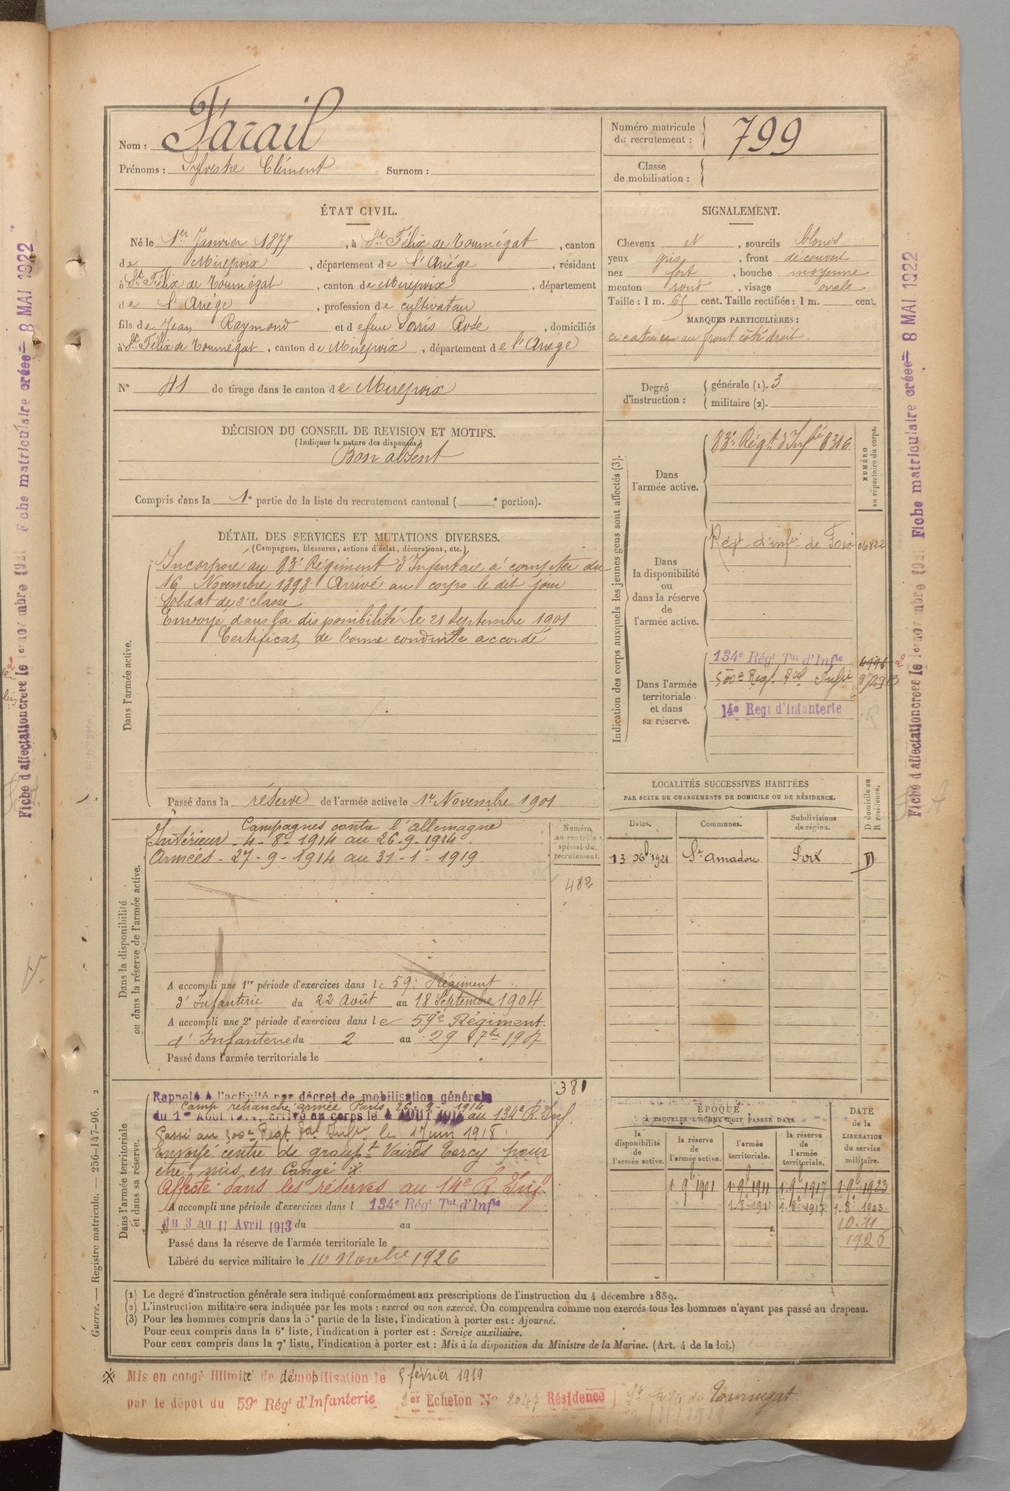 Nom : Farail
Prénoms : Sylvestre Clément Surnom :
Numéro matricule du recrutement : 799
Classe de mobilisation :
ÉTAT CIVIL.
Né le 1er Janvier 1877, à St Félix de Tournégat, canton
de Mirepoix, département de l'Ariége, résidant
à St Félix de Tournégat, canton de Mirepoix, département
de l'Ariége, profession de cultivateur
fils de Jean Raymond et de feue Rose, domiciliés
à St Félix de Tournégat, canton de Mirepoix, département de l'Ariége
N° 41 de tirage dans le canton de Mirepoix
SIGNALEMENT.
Cheveux et, sourcils blonds
yeux gris, front découvert
nez fort, bouche moyenne
menton rond, visage ovale
Taille : 1 m. 65 cent. Taille rectifiée : 1 m. cent.
MARQUES PARTICULIÈRES :
cicatrice au front côté droit.
Degré d'instruction : générale (1). 3
militaire (2).
DÉCISION DU CONSEIL DE REVISION ET MOTIFS.
(Indiquer la nature des dispenses)
Bon absent
Compris dans la 1e partie de la liste du recrutement cantonal ( e portion).
DÉTAIL DES SERVICES ET MUTATIONS DIVERSES.
(Campagnes, blessures, actions d'éclat, décorations, etc.)
Dans l'armée active.
Incorporé au 83e Régiment d'Infanterie à compter du
16 Novembre 1898. Arrivé au corps le dit jour
Soldat de 2e classe
Envoyé dans la disponibilité le 21 Septembre 1901
Certificat de bonne conduite accordé
Passé dans la réserve de l'armée active le 1er Novembre 1901
Indication des corps auxquels les jeunes gens sont affectés (3).
NUMÉRO au répertoire du corps.
Dans l'armée active.
83e Régt d'Infie 8316
Dans la disponibilité ou dans la réserve de l'armée active.
Régt d'infie de Foix 06822
Dans l'armée territoriale et dans sa réserve.
134e Régt Tal d'Infie
500e Régt Tal Infie
14e Régt d'Infanterie
LOCALITÉS SUCCESSIVES HABITÉES
PAR SUITE DE CHANGEMENTS DE DOMICILE OU DE RÉSIDENCE.
Dates. Communes. Subdivisions de région. D domicile ou R résidence.
13 Xbre 1921 St Amadou Foix D
Dans la disponibilité ou dans la réserve de l'armée active.
Numéro au contrôle spécial du recrutement.
482
Campagnes contre l'allemagne
Intérieur - 4-8-1914 au 26-9-1914
Armées - 27-9-1914 au 31-1-1919
A accompli une 1re période d'exercices dans le 59e Régiment
d'Infanterie du 22 Août au 18 Septembre 1904
A accompli une 2e période d'exercices dans le 59e Régiment
d'Infanterie du 2 au 29 7bre 1907
Passé dans l'armée territoriale le
Dans l'armée territoriale et dans sa réserve.
381
Rappelé à l'activité par décret de mobilisation générale
Camp retranché armée Paris 26-9-1914
du 1er Août arrivé au corps le 4 AOUT 1914 au 134e R. Inf.
Passé au 500e Régt Tal Infie le 1 Juin 1918.
Envoyé centre de groupt Vaires Torcy pour
être mis en Congé ※
Affecté dans les réserves au 14e R. Inf.
A accompli une période d'exercices dans l 134e Régt Tal d'Infie
du 3 au 11 Avril 1913 du au
Passé dans la réserve de l'armée territoriale le
Libéré du service militaire le 10 Novbre 1926
ÉPOQUE
À LAQUELLE L'HOMME DOIT PASSER DANS
la disponibilité de l'armée active. la réserve de l'armée active. l'armée territoriale. la réserve de l'armée territoriale. DATE DE LA LIBÉRATION DU SERVICE MILITAIRE.
1 9bre 1901 1 9bre 1911 1 9bre 1917 1 9bre 1923
1 8bre 1911 1 8bre 1917 1 8bre 1923
10-11
1926
(1) Le degré d'instruction générale sera indiqué conformément aux prescriptions de l'instruction du 4 décembre 1889.
(2) L'instruction militaire sera indiquée par les mots : exercé ou non exercé. On comprendra comme non exercés tous les hommes n'ayant pas passé au drapeau.
(3) Pour les hommes compris dans la 5e partie de la liste, l'indication à porter est : Ajourné.
Pour ceux compris dans la 6e liste, l'indication à porter est : Service auxiliaire.
Pour ceux compris dans la 7e liste, l'indication à porter est : Mis à la disposition du Ministre de la Marine. (Art. 4 de la loi.)
※ Mis en congé illimité de démobilisation le 5 février 1919
par le dépôt du 59e Régt d'Infanterie 2e Echelon N° 2047 Résidence St Félix de Tournégat
Guerre. — Registre matricule. — 256-147-96. 2